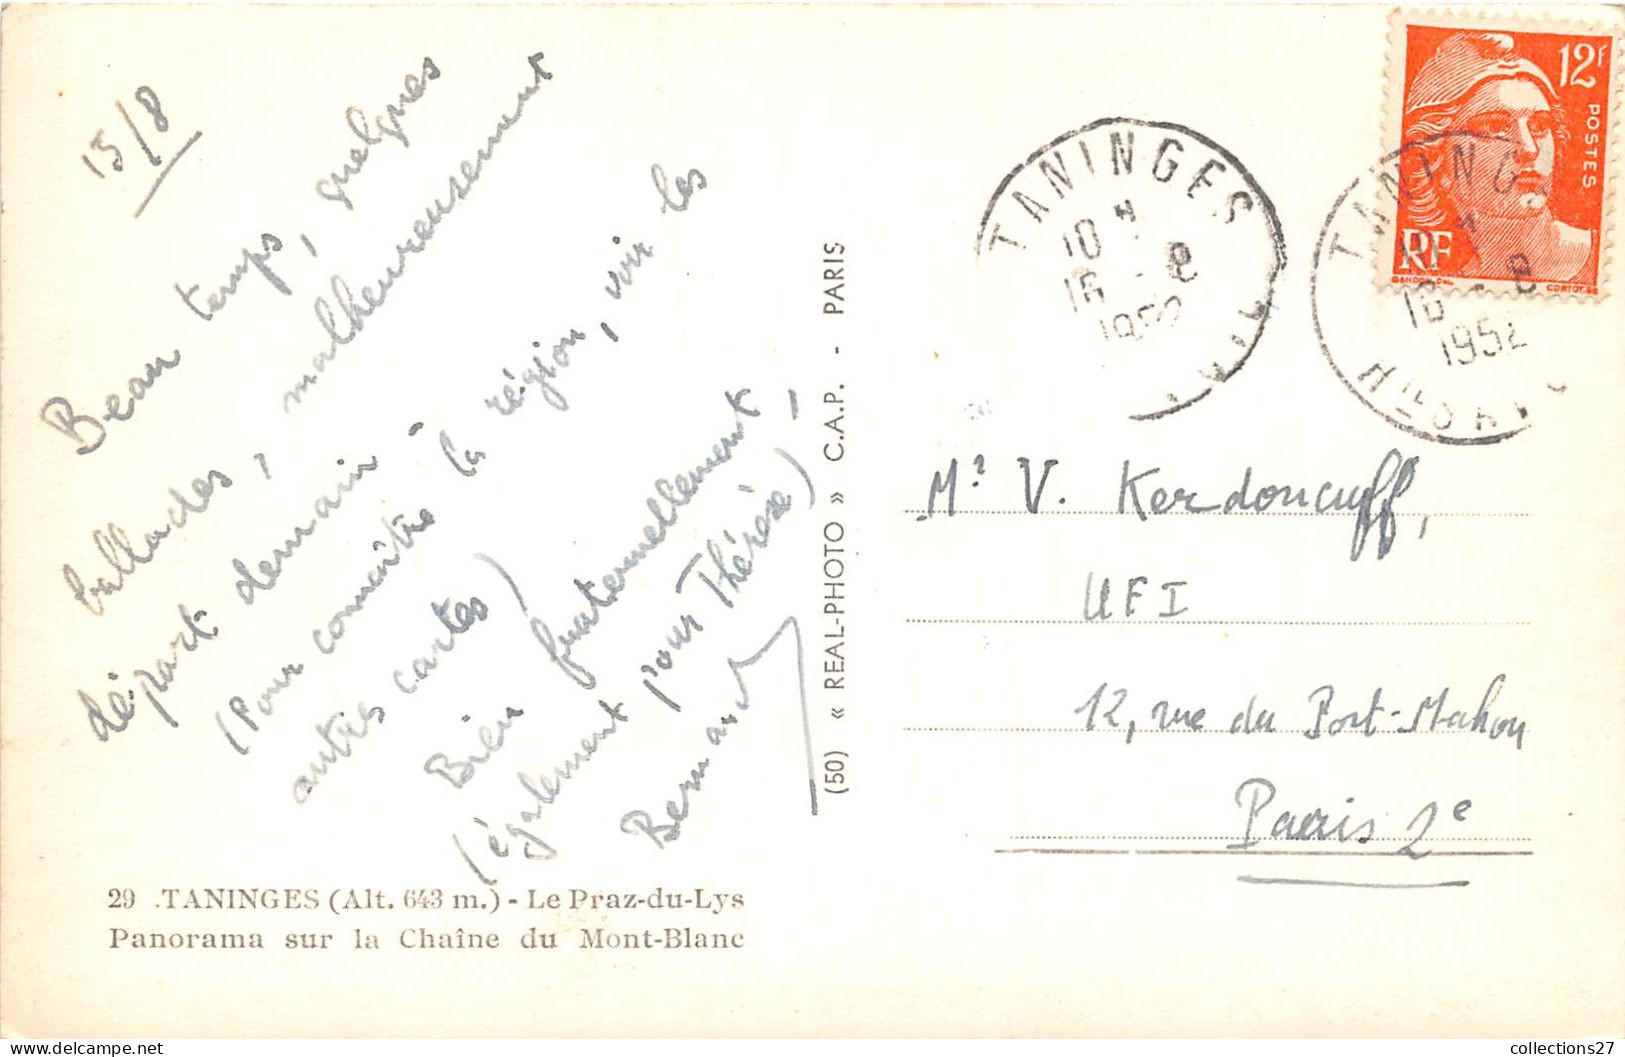 15/8
Beau temps, quelques
ballades, malheureusement
départ demain -
(Pour connaître la région, voir les
autres cartes)
Bien fraternellement,
(également pour Thérèse)
Bernard
29 .TANINGES (Alt. 643 m.) - Le Praz-du-Lys
Panorama sur la Chaîne du Mont-Blanc
(50) « REAL-PHOTO » C.A.P. - PARIS
TANINGES
16 - 8
1952
12f
POSTES
RF
GANDON DEL
CORTOT SC
TANING
16 - 8
1952
Hte SAV
Mr V. Kerdoncuff,
UFI
12, rue du Port-Mahon
Paris 2e
collections27